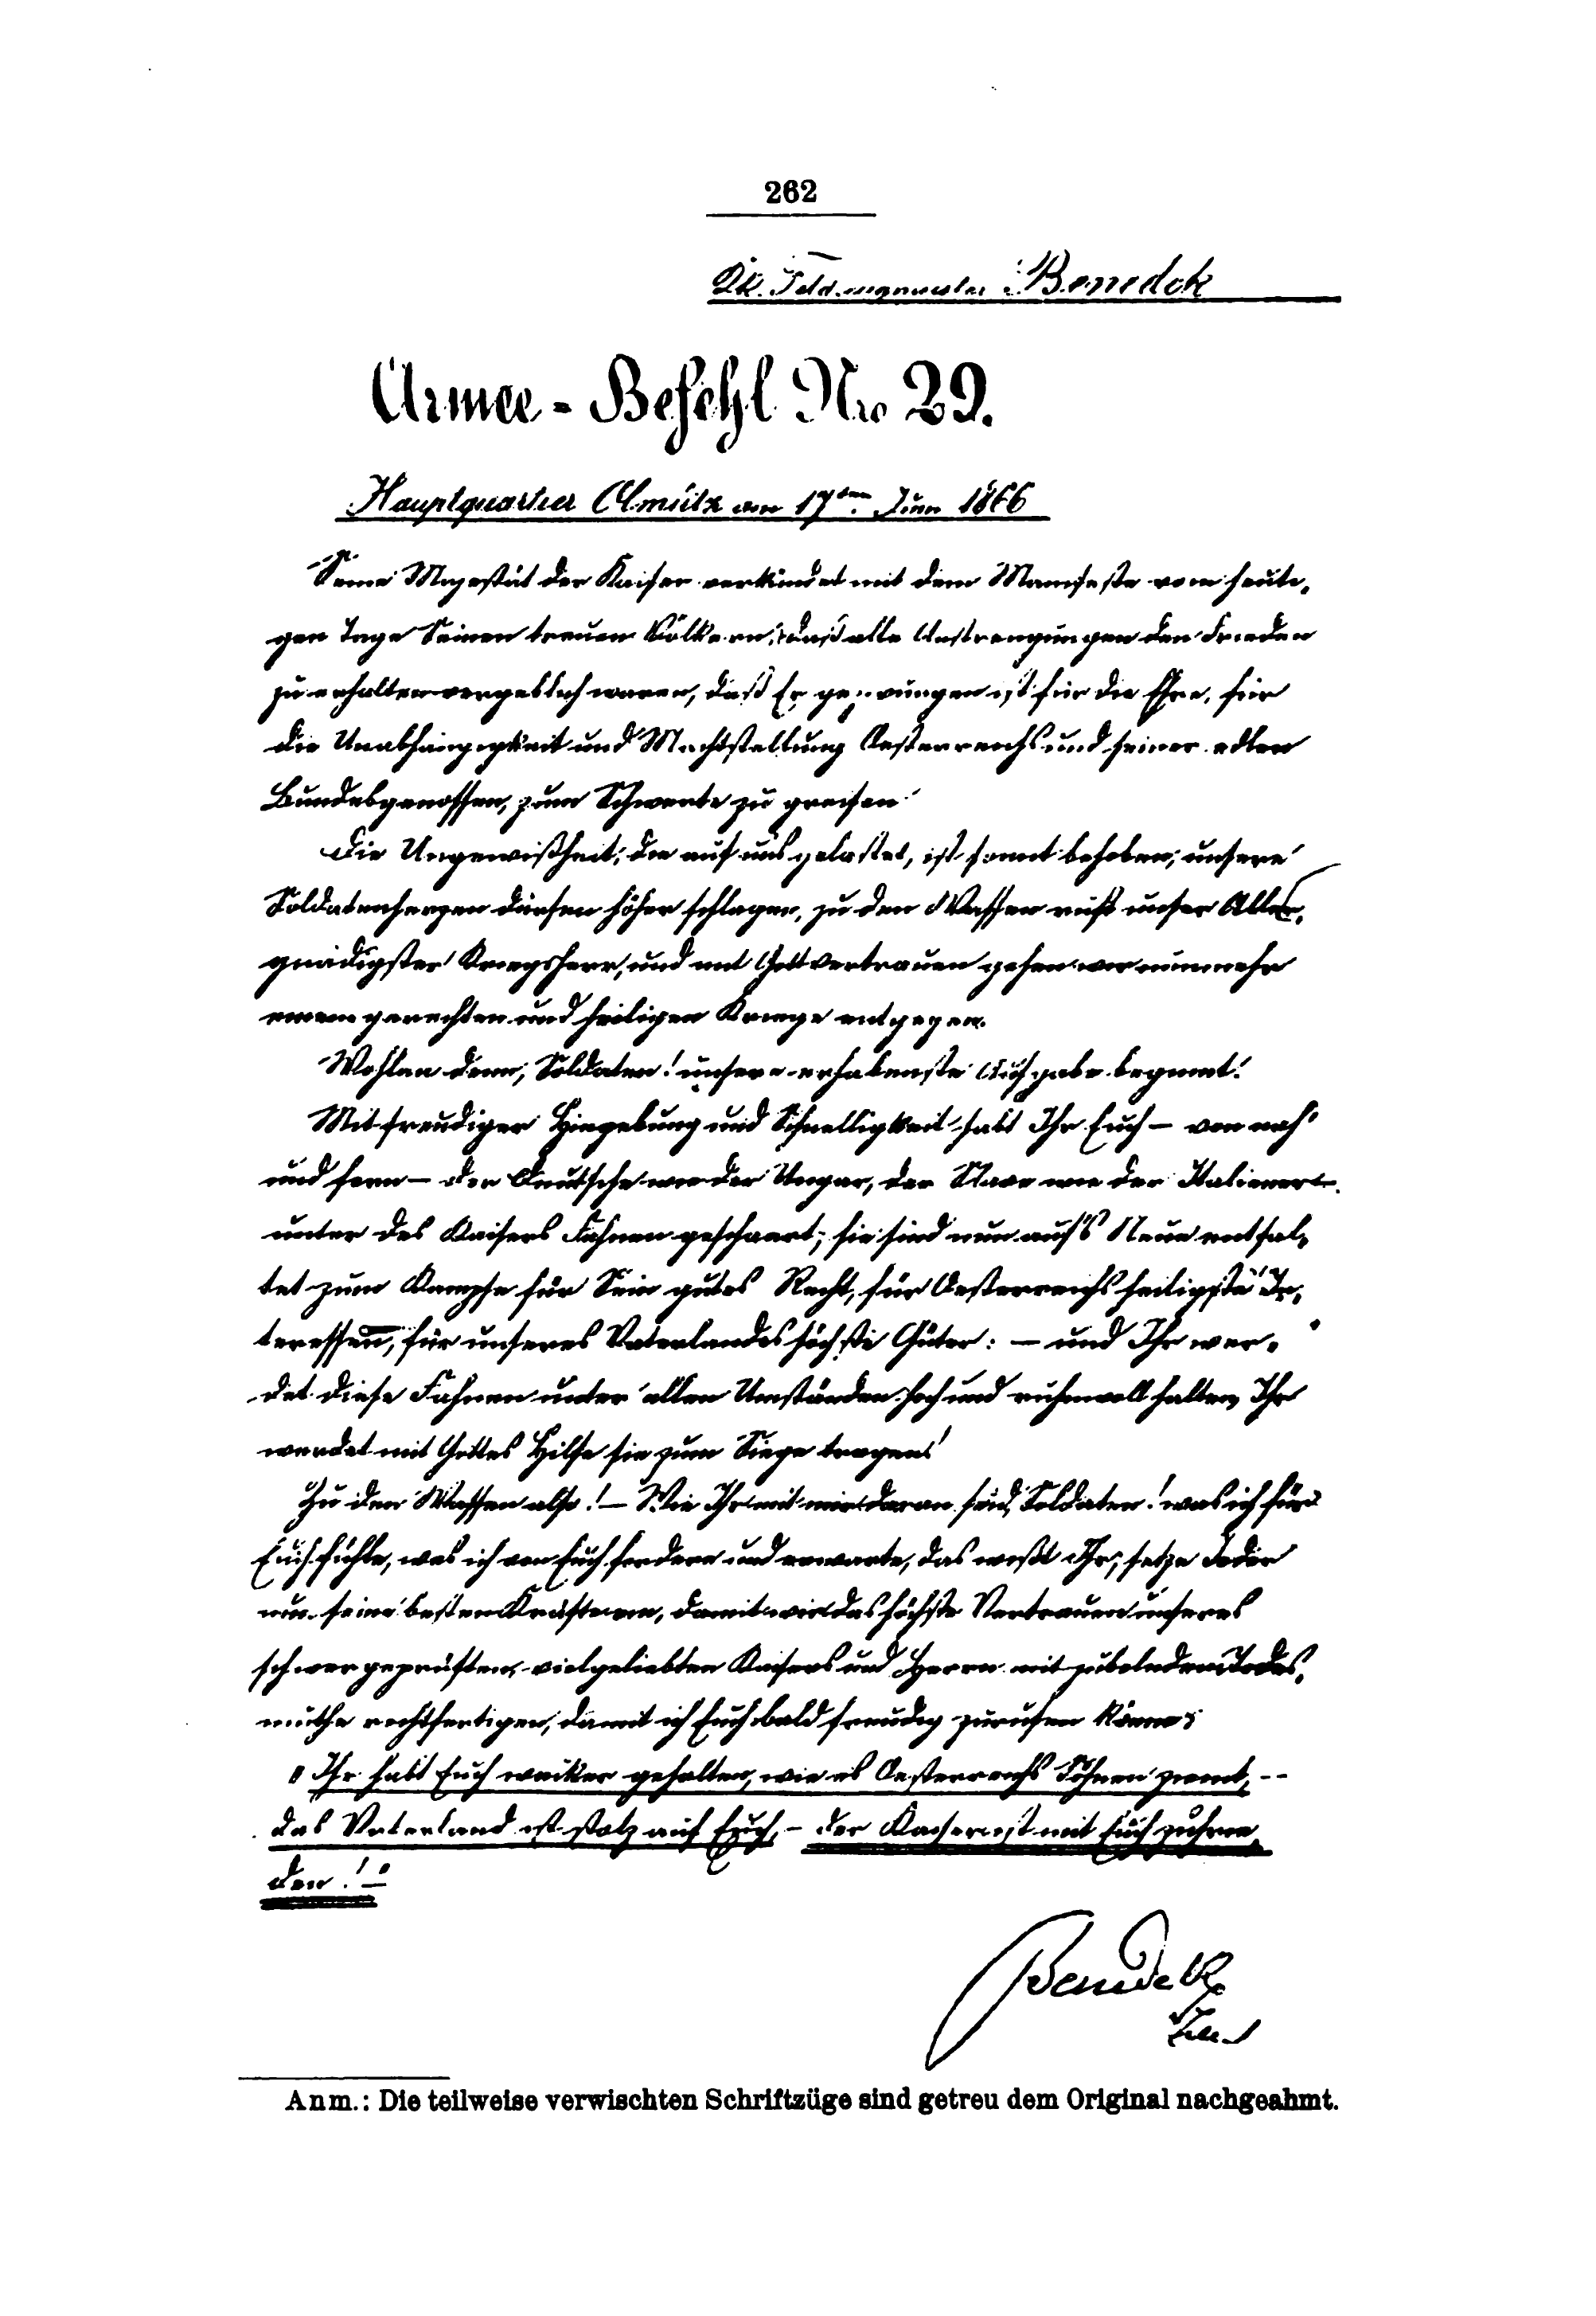 262
K.k. Feldzeugmeister Benedek
Armee-Befehl No 29.
Hauptquartier Olmütz am 17ten Juni 1866
Seine Majestät der Kaiser verkündet mit dem Manifeste vom heuti-
gen Tage Seinen treuen Völkern, daß alle Anstrengungen den Frieden
zu erhalten vergeblich waren, daß Er gezwungen ist für die Ehre, für
die Unabhängigkeit und Machtstellung Oesterreichs und seiner edlen
Bundesgenossen, zum Schwerte zu greifen
Die Ungewißheit, die auf uns gelastet, ist somit behoben; unsere
Soldatenherzen dürfen höher schlagen, zu den Waffen ruft unser Aller-
gnädigster Kriegsherr, und mit Gottvertrauen gehen wir nunmehr
einem gerechten und heiligen Kriege entgegen.
Wohlan denn, Soldaten! unsere erhabenste Aufgabe beginnt!
Mit freudiger Hingebung und Schnelligkeit habt Ihr Euch – von nah
und fern – der Deutsche wie der Ungar, der Slave wie der Italiener –
unter des Kaisers Fahnen geschaart; sie sind nun auf's Neue entfal-
tet zum Kampfe für Sein gutes Recht, für Oesterreichs heiligste In-
teressen, für unseres Vaterlandes höchste Güter: – und Ihr wer-
det diese Fahnen unter allen Umständen hoch und ruhmvoll halten, Ihr
werdet mit Gottes Hilfe sie zum Siege tragen!
Zu den Waffen also! – Wie Ihr mit mir daran seid, Soldaten! was ich für
Euch fühle, was ich von Euch fordere und erwarte, das wißt Ihr; setze Jeder
nun seine besten Kräfte ein, damit wir das höchste Vertrauen unseres
schwergeprüften, vielgeliebten Kaisers und Herrn mit jubelndem Todes-
muthe rechtfertigen, damit ich Euch bald freudig zurufen könne:
"Ihr habt Euch wacker gehalten, wie es Oesterreichs Söhnen ziemt, --
das Vaterland ist stolz auf Euch, – der Kaiser ist mit Euch zufrie-
den!"
Benedek
Anm.: Die teilweise verwischten Schriftzüge sind getreu dem Original nachgeahmt.